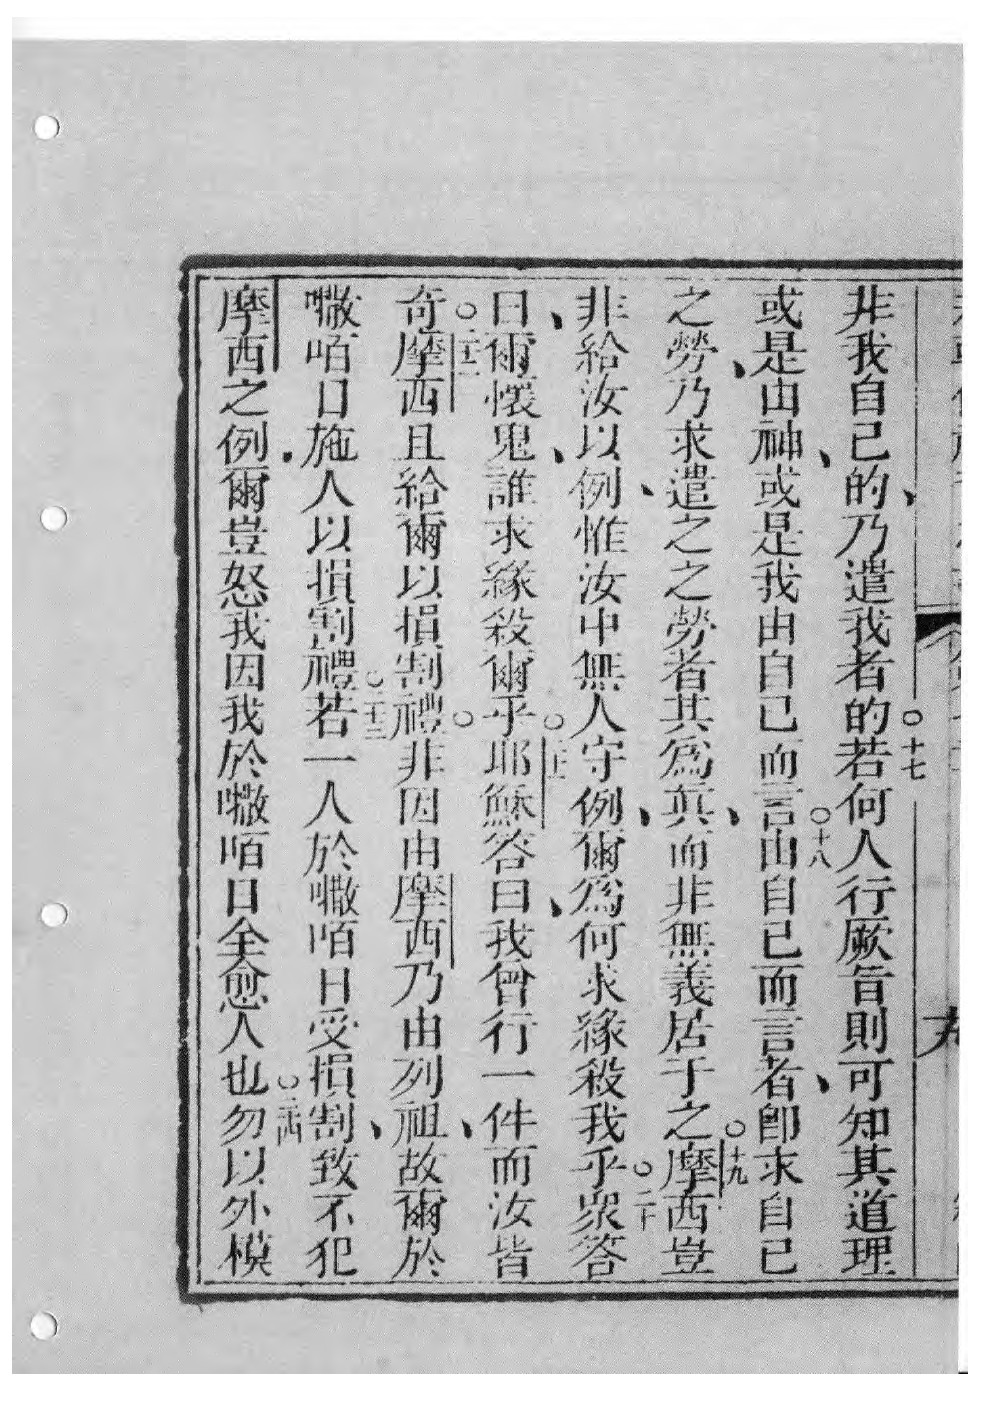 非我自己的乃遣我者的○十七若何人行厥旨則可知其道理
或是由神或是我由自己而言○十八由自己而言者卽求自己
之勞乃求遣之之勞者其爲眞而非無義居于之○十九摩西豈
非給汝以例惟汝中無人守例爾爲何求緣殺我乎○二十衆答
曰爾懷鬼誰求緣殺爾乎○二十一耶穌答曰我曾行一件而汝皆
奇○二十二摩西且給爾以損割禮○非因由摩西乃由列祖故爾於
𡃤咟日施人以損割禮○二十三若一人於𡃤咟日受損割致不犯
摩西之例爾豈怒我因我於𡃤咟日全愈人也○二十四勿以外模